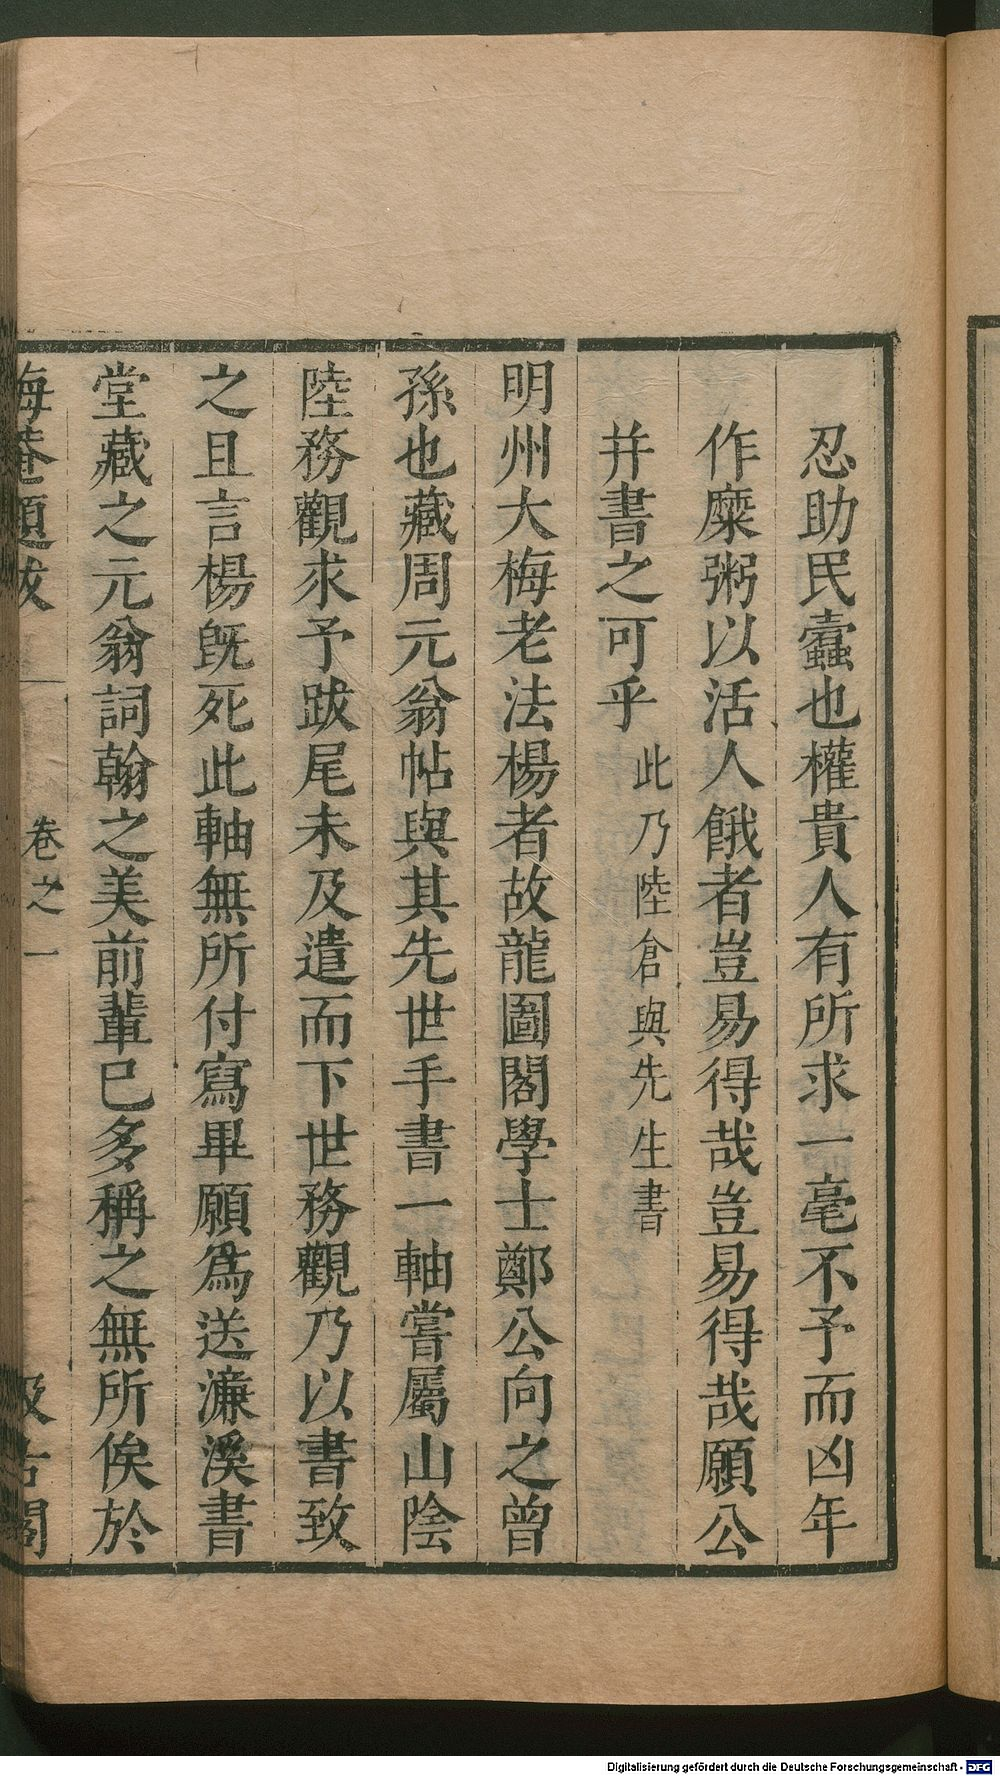 忍助民蠹也權貴人有所求一毫不予而凶年
作糜粥以活人餓者豈易得哉豈易得哉願公
并書之可乎此乃陸倉與先生書
明州大梅老法楊者故龍圖閣學士鄭公向之曾
孫也藏周元翁帖與其先世手書一軸嘗屬山陰
陸務觀求予跋尾未及遣而下世務觀乃以書致
之且言楊旣死此軸無所付寫畢願爲送濂溪書
堂藏之元翁詞翰之美前輩已多稱之無所俟於
海菴題跋
卷之一
汲古閣
Digitalisierung gefördert durch die Deutsche Forschungsgemeinschaft - DFG